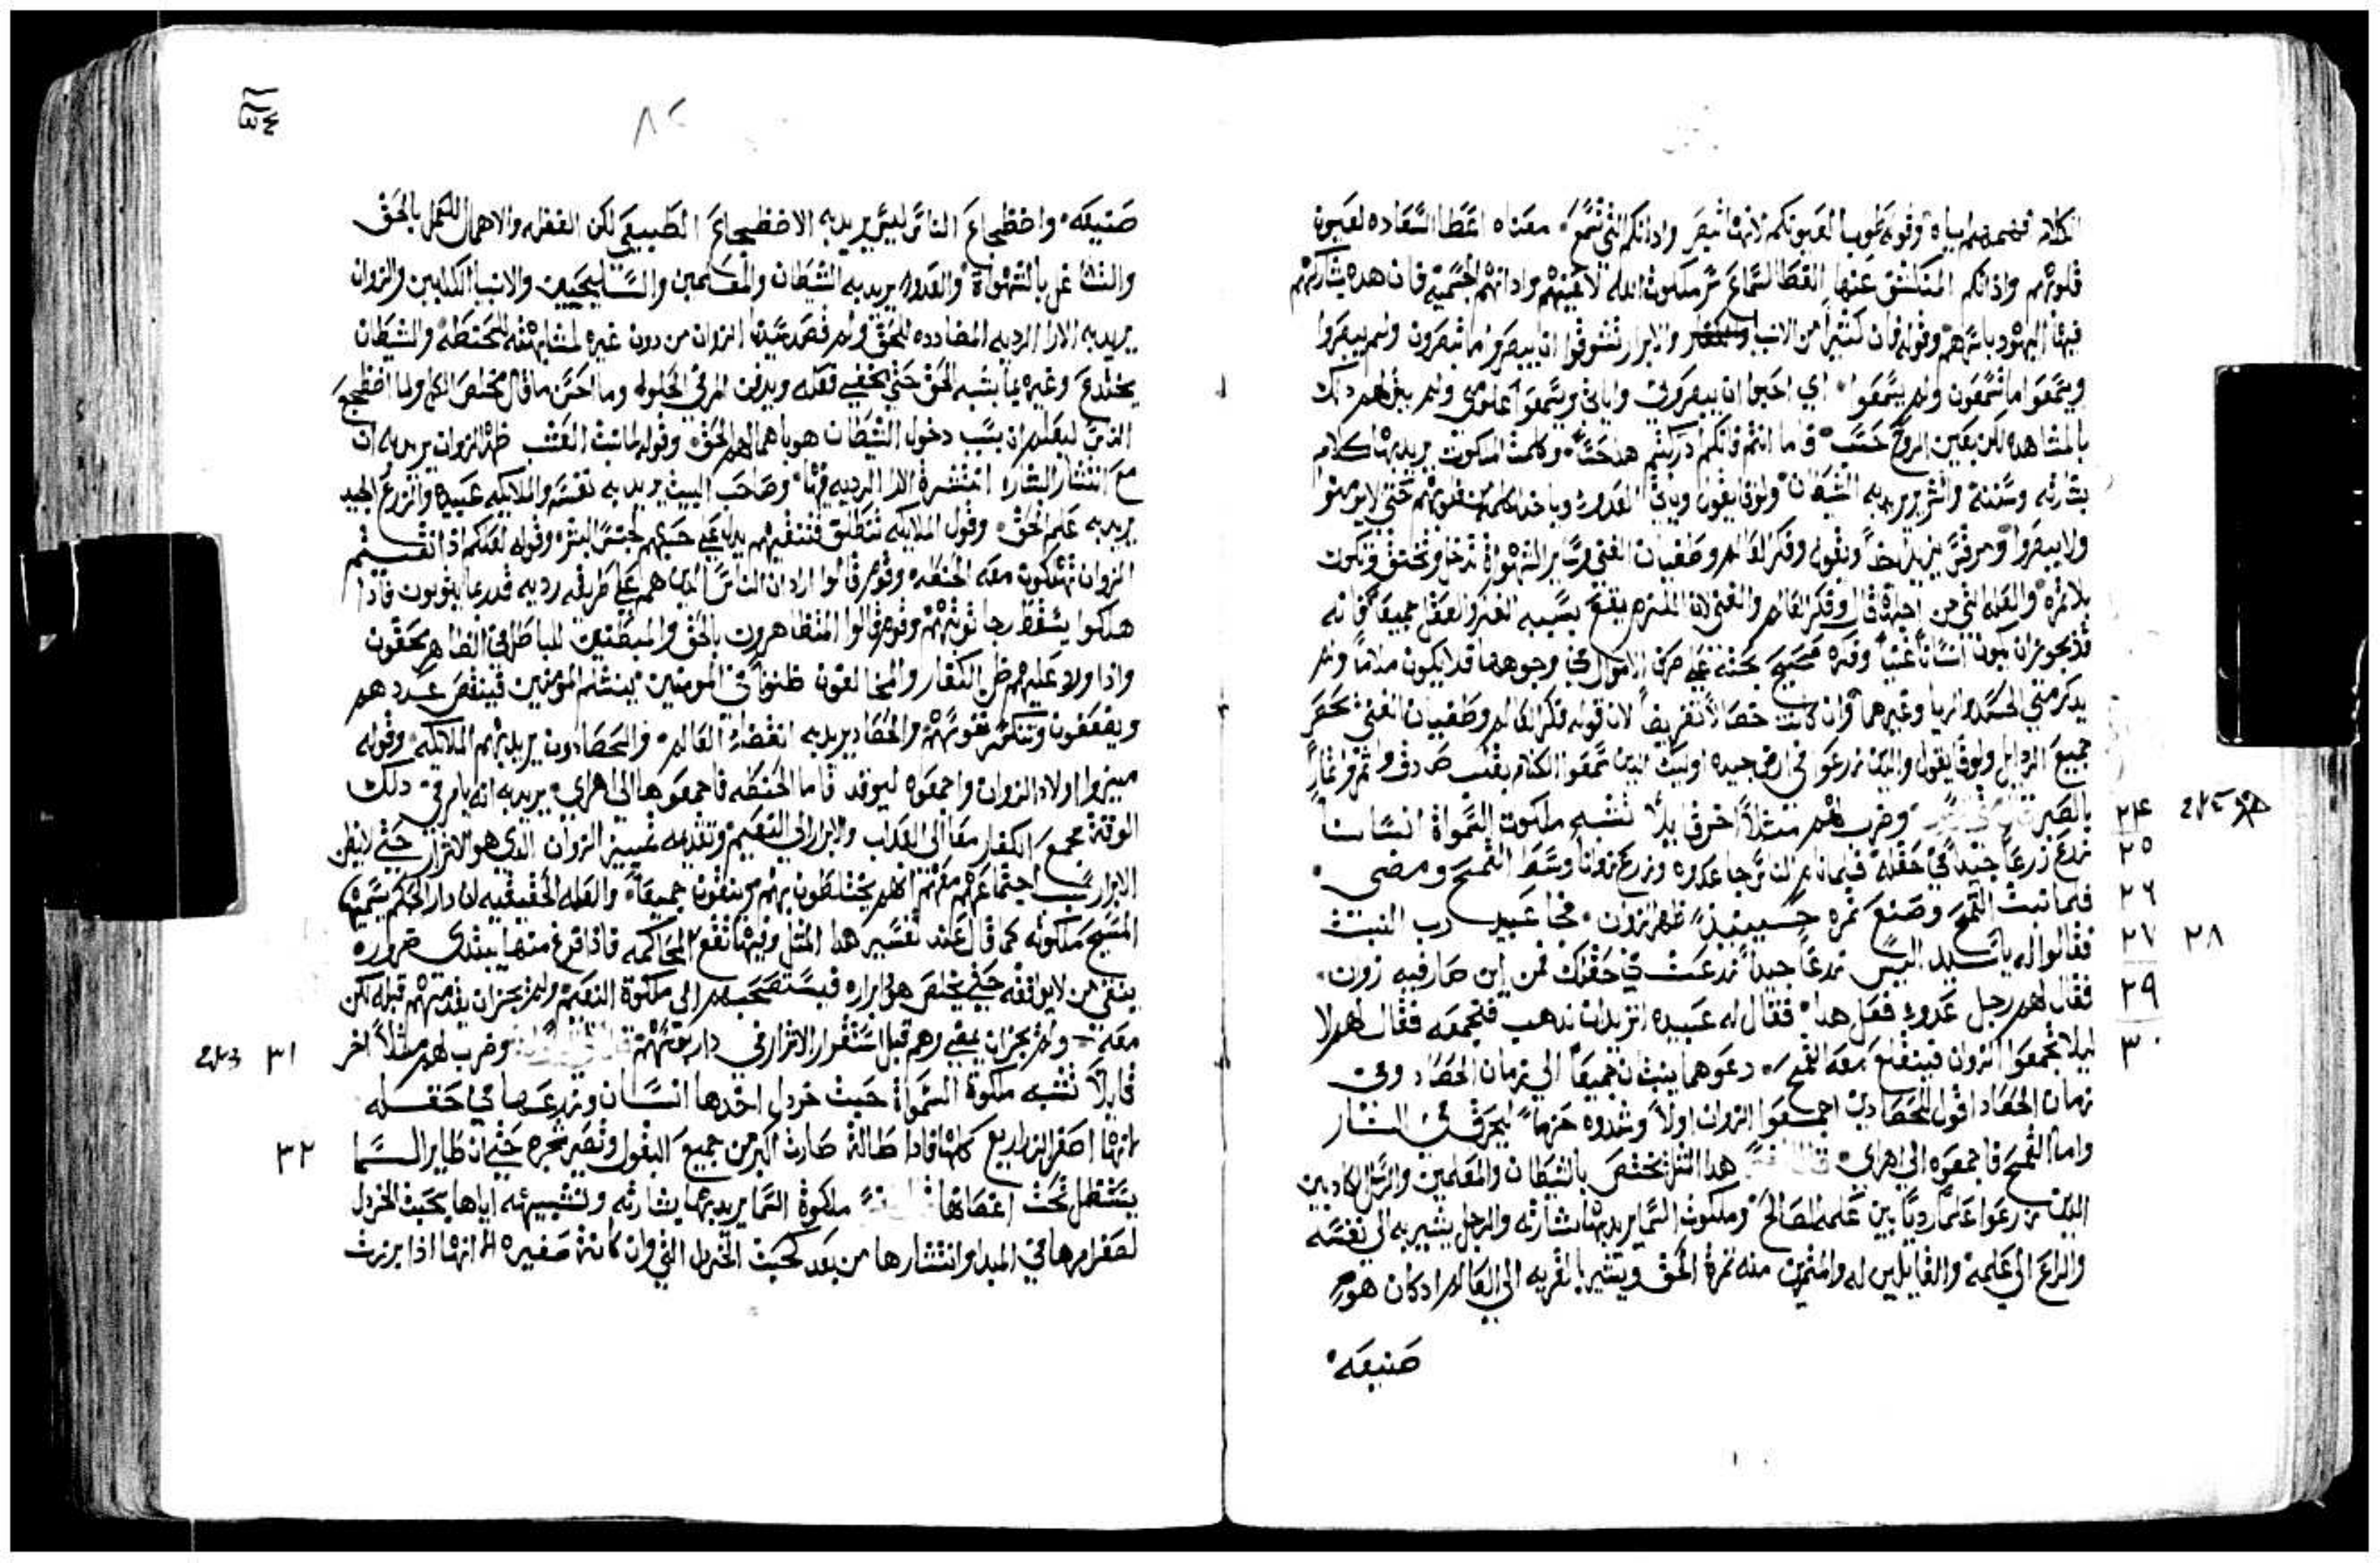 الكلام فهمه لهم بيانه وقوله طوبا لعيونكم لانها تبصر واذانكم التي تسمع معناه اعطا السعاده لعيون
قلوبهم واذانكم المنكشق عنها الغطا لسماع سر ملكوت الله لا اعينهم واذانهم الجسميه فان هذه يشاركهم
فيها اليهود باسرهم وقوله فان كثيرا من الانبيا والابرار تشوقوا ان يبصروا ما تبصرون ولم يبصروا
ويسمعوا ما تسمعون ولم يسمعوا اي احبوا ان يبصروني واياتي ويسمعوا علومي ولم يبق لهم ذلك
بالمشاهده لكن بعين الروح حسب فاما انتم فانكم ادركتم هذا حسا وكلمت الملكوت يريد بها كلام
بشارته وسننه والشرير يريد به الشيطان ولوقا يقول وياتي العدو وياخذ الكلمه من قلوبهم حتى لا يومنوا
ولا يبصروا ومرقس يزيد ايضا ويقول وفكر العالم وطغيان الغنى وساير الشهواة تدخل وتخنق وتكون
بلا ثمره والعله التي من اجلها قال وفكر العالم والغنى لان المنزه يقنع بسببه الغنى والعقل جميعا فانه
قد يجوز ان يكون انسانا غنيا وفكره صحيح بحثه على صرف الاموال في وجوهها قد لا يكون ملاما ولم
يذكر متي الحسد والريا وغيرهما وان كانت خصالا تعريضا لان قوله فكر العالم وطغيان الغنى يحصر
جميع الرذايل ولوقا يقول والذين زرعوا في ارض جيده اوليك الذين سمعوا الكلام بقلب صدوق واثمروا ثمارا
بالصبر وضرب لهم مثلا اخر قايلا تشبه ملكوت السمواة انسانا
٢٤
زرع زرعا جيدا في حقله فلما نام الناس جا عدوه وزرع زوانا وسط القمح ومضى
٢٥
فلما نبت القمح وصنع ثمره حينيذ ظهر الزوان فجا عبيد رب البيت
٢٦
فقالوا له يا سيد اليس زرعا جيدا زرعت في حقلك فمن اين صار فيه زوان
٢٧ ٢٨
فقال لهم رجل عدو فعل هذا فقال له عبيده اتريد ان نذهب فنجمعه فقال لهم لا
٢٩
ليلا تجمعوا الزوان فينقلع معه القمح دعوهما ينبتان جميعا الى زمان الحصاد وفي
٣٠
زمان الحصاد اقول للحصادين اجمعوا الزوان اولا وشدوه حزما ليحرق في النار
واما القمح فاجمعوه الى اهراي هذا المثل يختص بالشيطان والمعلمين والرسل الكاذبين
الذين زرعوا علما رديا بين علمه الصالح وملكوت السما يريد بها بشارته والرجل يشير به الى نفسه
والزرع الى علمه والقابلين له والمثمرين منه ثمرة الحق ويشير بالقريه الى العالم اذ كان هو
صنيعه
٨٢
صنيعه واضطجاع الناس ليس يريد به الاضطجاع الطبيعي لكن الغفله والاهمال للعمل بالحق
والتشاغل بالشهواة والعدو يريد به الشيطان والمعلمين والمسايحيين والانبيا الكذابين والزوان
يريد به الارا الرديه المضادده للحق ولم قصد سيدنا الزوان من دون غيره لمشابهته للحنطه والشيطان
يختدع وغيره بما يشبه الحق حتى يخفي فعله ويدفن المر في الحلو وما احسن ما قال مخلص الكل ولما اضطجع
الناس ليعلم ان بسبب دخول الشيطان هو باهمالهم الحق وقوله لما نبت العشب ظهر الزوان يريد به ان
مع انتشار البشارة انتشرة الارا الرديه فيها وصاحب البيت يريد به نفسه والملايكه عبيده والزرع الجيد
يريد به علم الحق وقول الملايكه ننطلق فننقيهم يدل على حبهم لجنس البشر وقوله لعلكم اذا نقيتم
الزوان تهلكون معه الحنطه وقوم قالوا اراد ان الناس الذين هم على طريقه رديه قد ربما يتوبون فاذا
هلكوا يسقط رجا توبتهم وقوم قالوا المتظاهرون بالحق والمبطنين للباطل في الظاهر يحقون
واذا ولا عليهم ظن الكفار والمخالفون ظنوا في المومنين ينثلم المومنين فينقص عددهم
ويضعفون وتنكسر نفوسهم والحصاد يريد به انقضا العالم والحصادون يريد بهم الملايكه وقوله
ميزوا اولا الزوان واجمعوه ليوقد فاما الحنطه فاجمعوها الى اهراي يريد به انه يامر في ذلك
الوقت بجمع الكفار معا الى العذاب والابرار الى النعيم وتقديمه تمييز الزوان الذي هو الاشرار حتى لا يظن
الابرار ان اجتماعهم معهم انهم يختلطون بهم ويبقون جميعا والعله الحقيقيه ان دار الحكم يسميها
المسيح ملكوته كما قال عند تفسير هذا المثل وفيها تقع المحاكمه فاذا فرغ منها يبتدي ضروره
ينفي من لا يوافقه حتى يخلص هو ابراره فيستصحبهم الى ملكوة النعيم ولم يجز ان يقدمهم قبله لكن
معه ولم يجز ان يمضي وهم قبل استقرار الاشرار في دار عقوبتهم وضرب لهم مثلا اخر
٣١
قايلا تشبه ملكوة السمواة حبت خردل اخذها انسان وزرعها في حقله
لانها اصغر الزراريع كلها فاذا طالة صارت اكبر من جميع البقول وتصير شجره حتى ان طاير السما
٣٢
يستظل تحت اغصانها ملكوة السما يريد بها بشارته وتشبيهه اياها بحبت الخردل
لصغر امرها في المبدا وانتشارها من بعد كحبت الخردل التي وان كانة صغيره الا انها اذا برزت